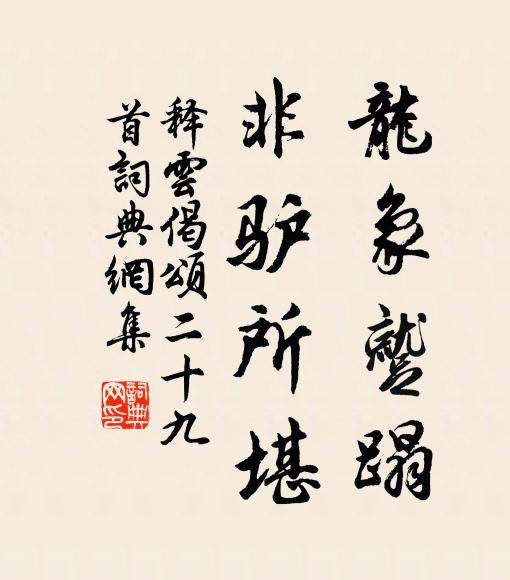 龍象蹵蹋
非驴所堪
释雲偈頌二十九
首詞典網集
詞典网印